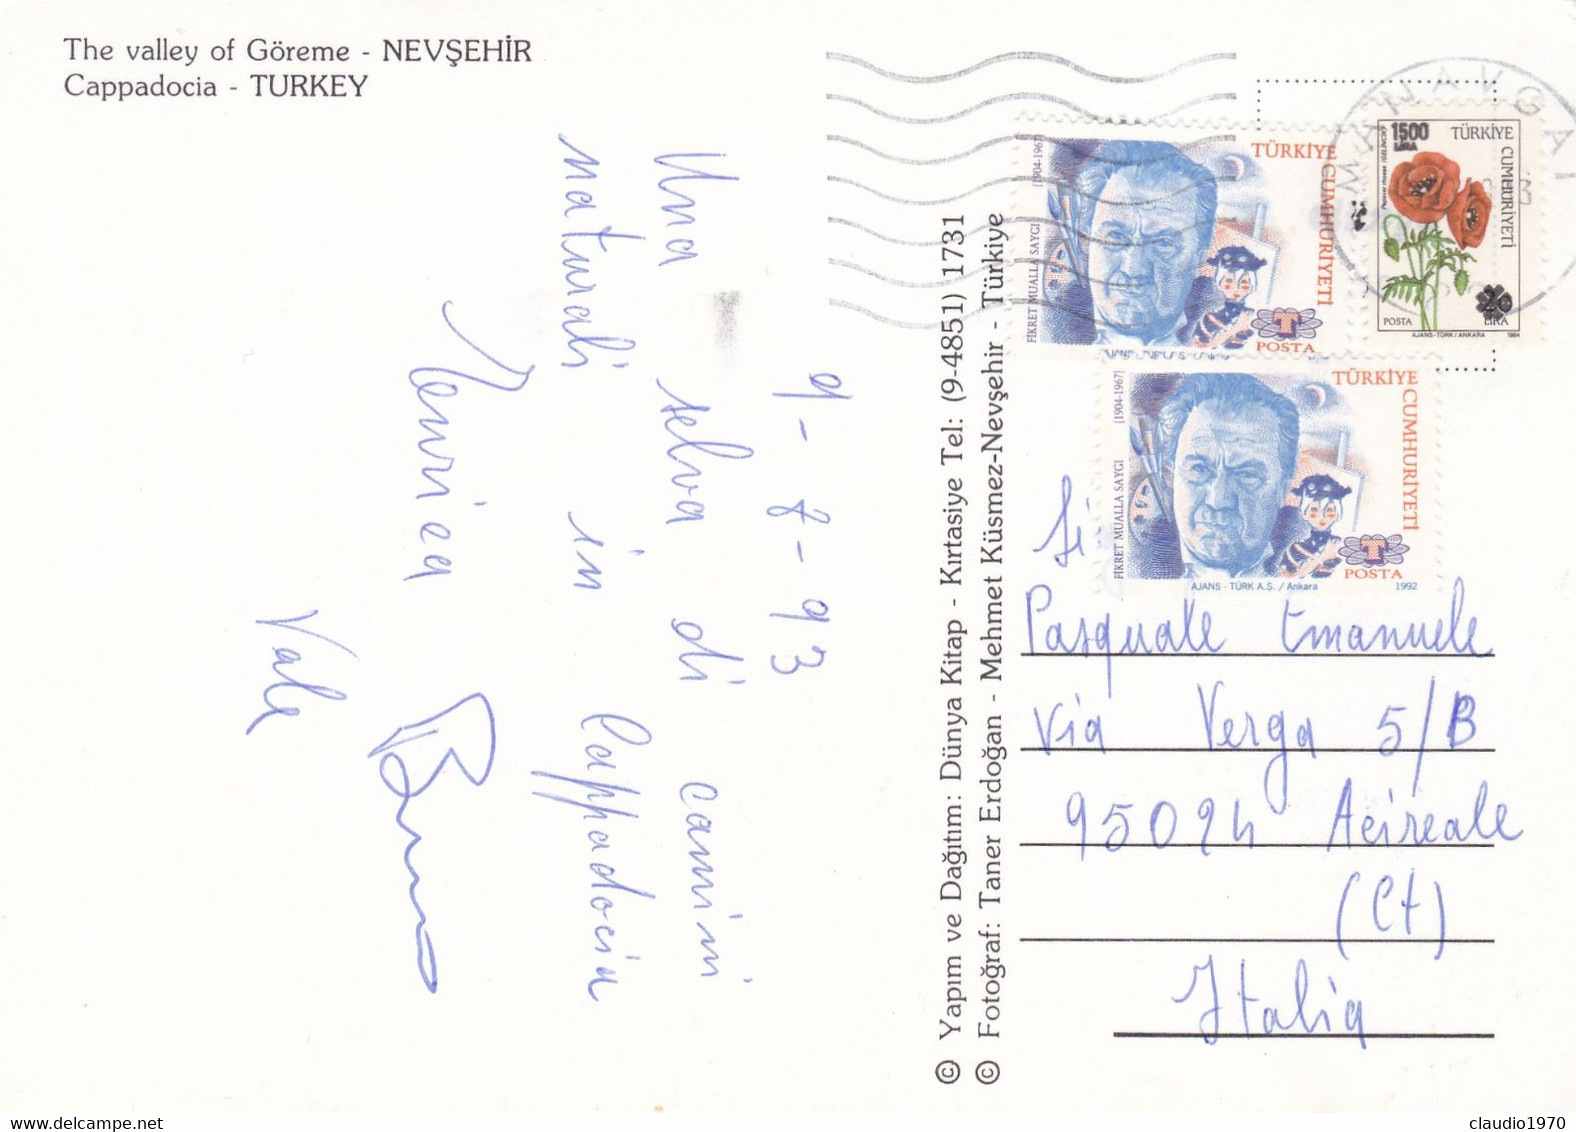 The valley of Göreme - NEVŞEHİR
Cappadocia - TURKEY
9-8-93
Una selva di camini
naturali in Cappadocia
Vale
© Yapım ve Dağıtım: Dünya Kitap - Kırtasiye Tel: (9-4851) 1731
© Fotoğraf: Taner Erdoğan - Mehmet Küsmez-Nevşehir - Türkiye
MANAVGAT
(1904-1967)
FİKRET MUALLA SAYGI
TÜRKİYE CUMHURİYETİ
POSTA
1500 LIRA
TÜRKİYE CUMHURİYETİ
POSTA
20 LİRA
AJANS-TÜRK/ANKARA 1984
(1904-1967)
FİKRET MUALLA SAYGI
TÜRKİYE CUMHURİYETİ
POSTA
AJANS - TÜRK A.Ş. / Ankara 1992
Pasquale Emanuele
Via Verga 5/B
95024 Acireale
(Ct)
Italia
claudio1970